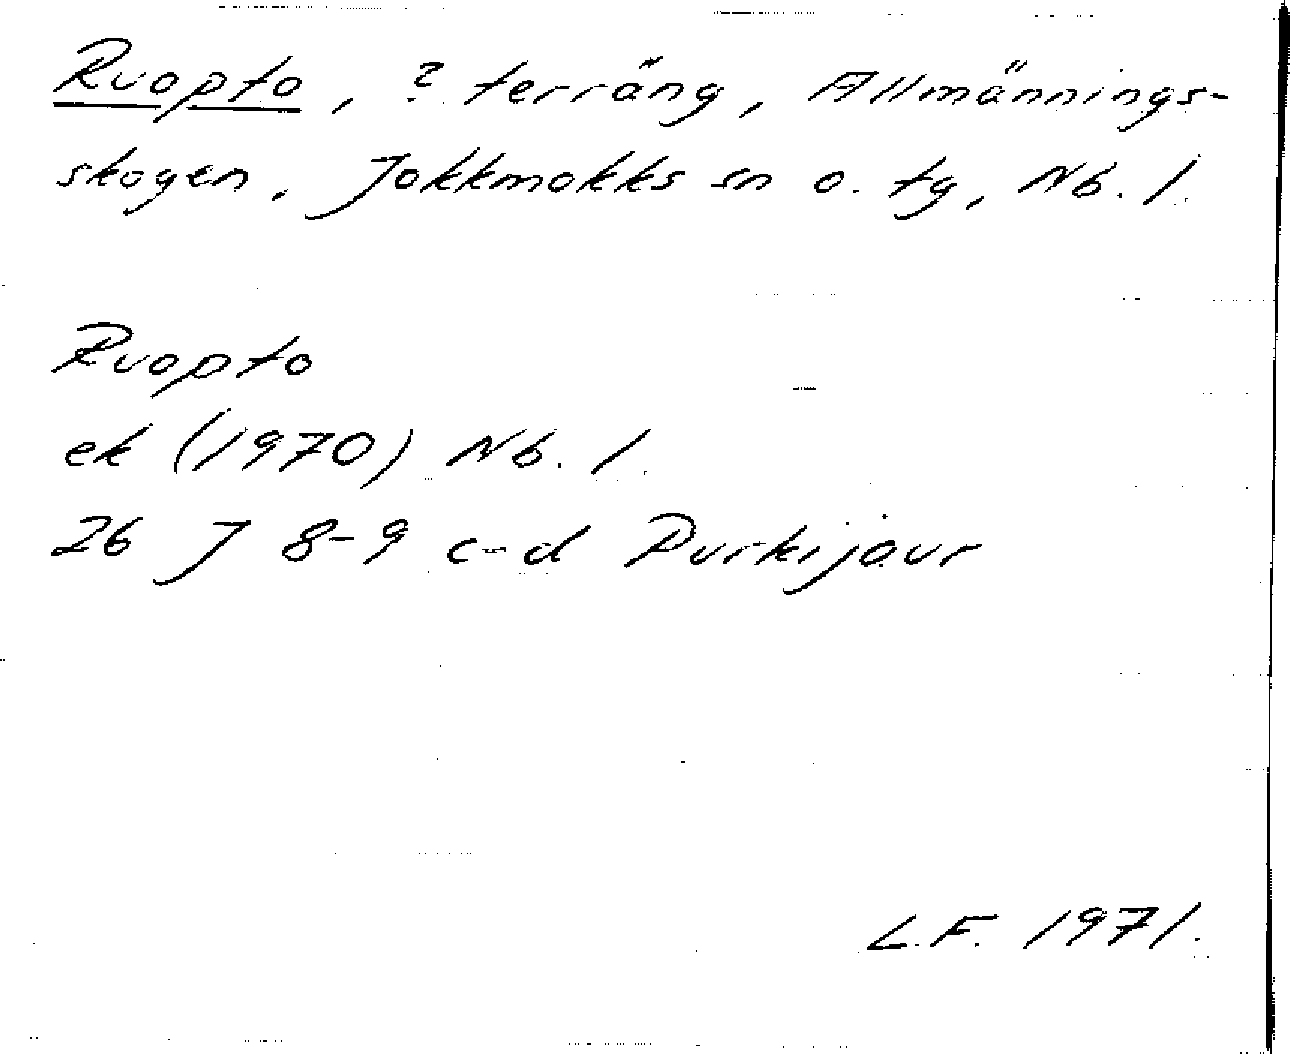 Ruopto, ? terräng, Allmännings-
skogen, Jokkmokks sn o. tg, Nb. l.
Ruopto
ek (1970) Nb. l.
26 J 8-9 c-d Purkijaur
L.F. 1971.